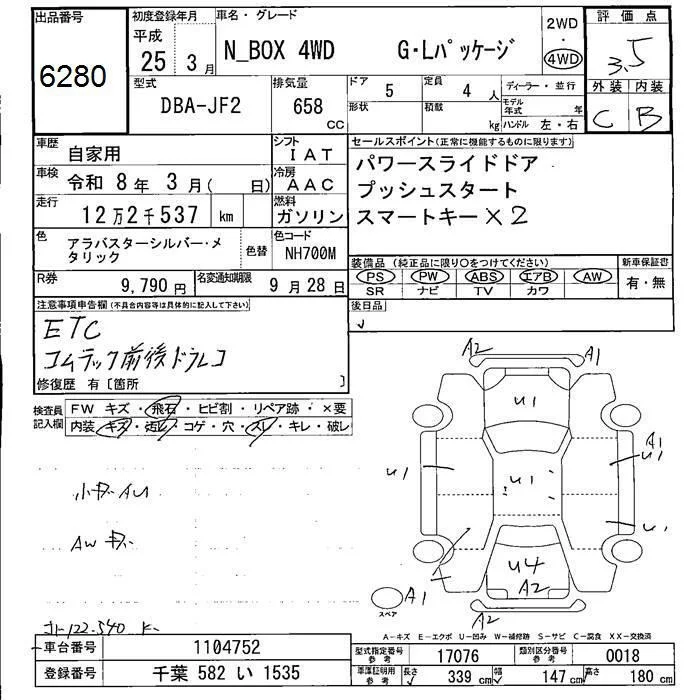 出品番号
6280
初度登録年月
平成
25年 3月
車名・グレード
N_BOX 4WD G・Lパッケージ
2WD
・
4WD
評価点
3.5
外装 内装
C B
型式
DBA-JF2
排気量
658
CC
ドア 5
形状
定員 4 人
積載 kg
ディーラー・並行
モデル年式 年
ハンドル 左・右
車歴 自家用
シフト IAT
車検 令和 8年 3月( 日)
冷房 AAC
走行 12万2千537 km
燃料 ガソリン
色 アラバスターシルバー・メタリック
色替
色コード NH700M
R券 9,790円
名変通知期限 9月28日
セールスポイント(正常に機能するものに限ります)
パワースライドドア
プッシュスタート
スマートキー×2
装備品(純正品に限り○をつけてください)
新車保証書
PS PW ABS エアB AW
SR ナビ TV カワ
有・無
後日品
注意事項申告欄(不具合内容等は具体的に記入して下さい)
ETC
コムテック前後ドラレコ
修復歴 有〔箇所 〕
検査員記入欄
FW キズ・飛石・ヒビ割・リペア跡・×要
内装・キズ・汚れ・コゲ・穴・スレ・キレ・破レ
A2 A1
U1
A1
U1 U1 U1
U1
U4
A1 A2
スペア
A2
小キズAU
AWキズ
A-キズ E-エクボ U-凹み W-補修跡 S-サビ C-腐食 XX-交換済
車台番号 1104752
登録番号 千葉 582 い 1535
型式指定番号 参考 17076
類別区分番号 参考 0018
車庫証明用 参考
長さ 339 cm
幅 147 cm
高さ 180 cm